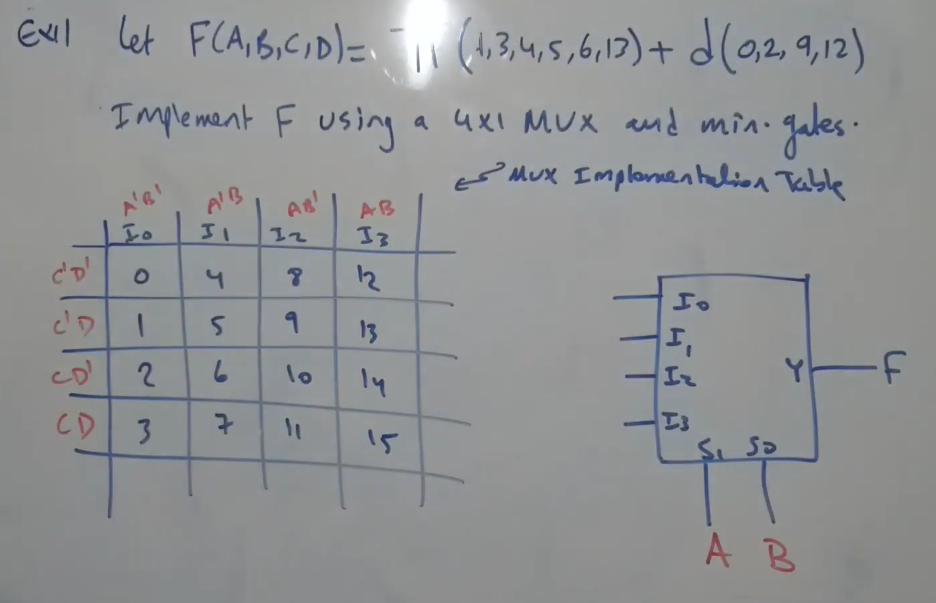 Ex1 Let F(A,B,C,D)= π (1,3,4,5,6,13)+ d(0,2,9,12)
Implement F using a 4x1 MUX and min. gates.
Mux Implementation Table
A'B' A'B AB' AB
I0 I1 I2 I3
C'D' 0 4 8 12
C'D 1 5 9 13
CD' 2 6 10 14
CD 3 7 11 15
I0
I1
I2 Y F
I3
S1 S0
A B